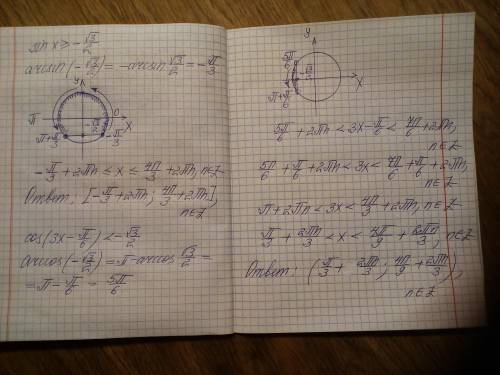 sin x ≥ -√3/2
arcsin(-√3/2) = -arcsin √3/2 = -π/3
y
π
0
π+π/3
-√3/2
-π/3
X
-π/3 + 2πn ≤ x ≤ 4π/3 + 2πn, n∈Z
Ответ: [-π/3 + 2πn; 4π/3 + 2πn],
n∈Z
cos(3x - π/6) < -√3/2
arccos(-√3/2) = π - arccos √3/2 =
= π - π/6 = 5π/6
y
5π/6
-√3/2
X
π+π/6
5π/6 + 2πn < 3x - π/6 < 7π/6 + 2πn,
n∈Z
5π/6 + π/6 + 2πn < 3x < 7π/6 + π/6 + 2πn,
n∈Z
π + 2πn < 3x < 4π/3 + 2πn, n∈Z
π/3 + 2πn/3 < x < 4π/9 + 2πn/3, n∈Z
Ответ: (π/3 + 2πn/3; 4π/9 + 2πn/3),
n∈Z